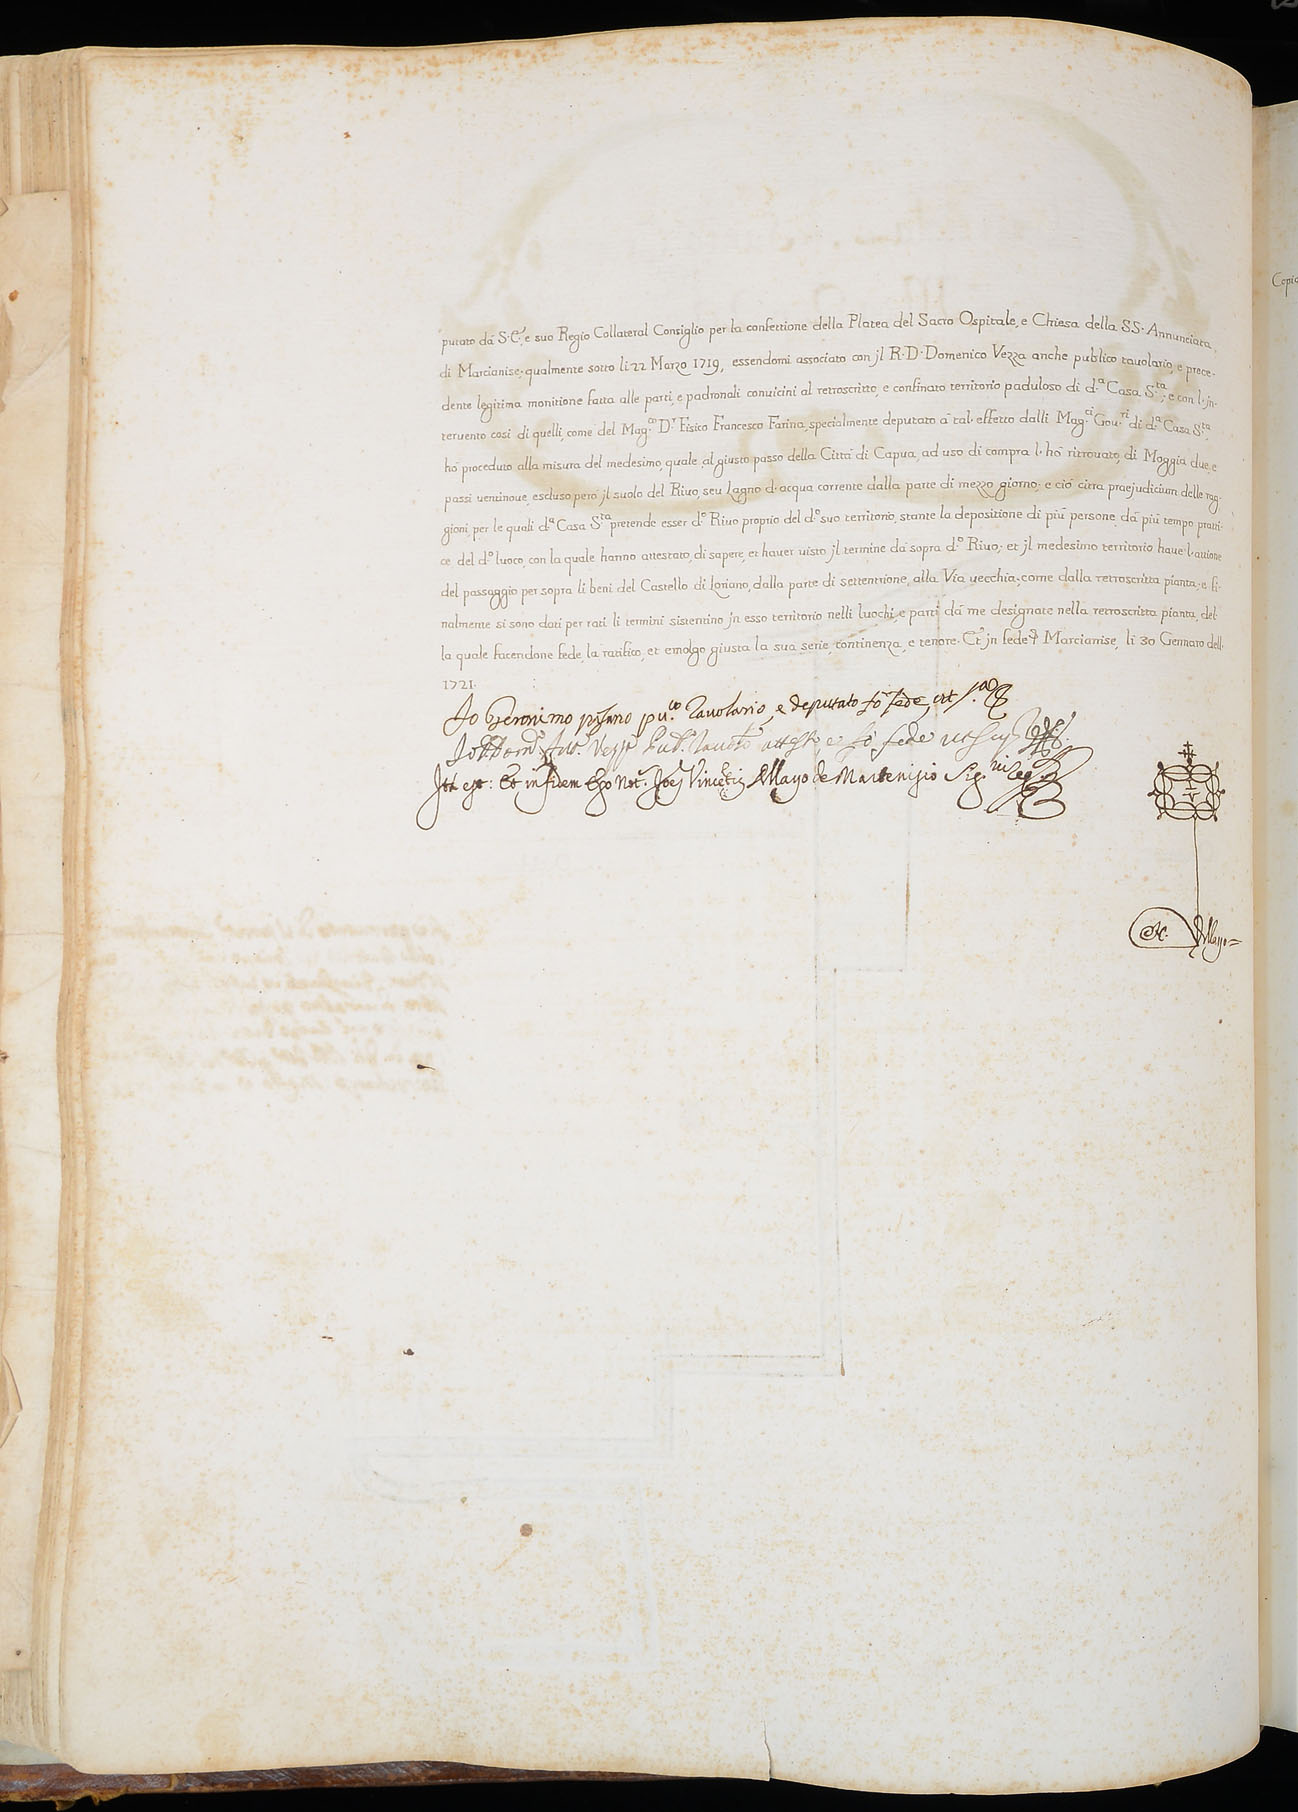 putato dà S.E., e suo Regio Collateral Consiglio per la confettione della Platea del Sacro Ospitale, e Chiesa della SS. Annunciata,
di Marcianise; qualmente sotto li 22 Marzo 1719, essendomi associato con jl R.D. Domenico Vezza anche publico tauolario, e prece-
dente legitima monitione fatta alle parti, e padronali conuicini al retroscritto, e confinato territorio paduloso di d.ª Casa S.ta; e con l'jn-
teruento così di quelli, come del Mag.co D.r Fisico Francesco Farina, specialmente deputato à tal' effetto dalli Mag.ci Gou.ri di d.ª Casa S.ta,
hò proceduto alla misura del medesimo, quale, al giusto passo della Città di Capua, ad uso di compra l'hò ritrouato, di Moggia due, e
passi uentinoue, escluso però jl suolo del Riuo, seu Lagno d'acqua corrente dalla parte di mezzo giorno; e ciò citra praejudicium delle rag-
gioni, per le quali d.ª Casa S.ta pretende esser d.º Riuo proprio del d.º suo territorio, stante la depositione di più persone, dà più tempo pratti-
ce del d.º luoco, con la quale hanno attestato, di sapere, et hauer uisto jl termine dà sopra d.º Riuo; et jl medesimo territorio haue l'attione
del passaggio per sopra li beni del Castello di Loriano, dalla parte di settentrione, alla Via uecchia; come dalla retroscritta pianta; e fi-
nalmente si sono dati per rati li termini sistentino jn esso territorio nelli luochi, e parti dà me designate nella retroscritta pianta, del-
la quale facendone fede, la ratifico, et emolgo giusta la sua serie, continenza, e tenore. Et jn fede Marcianise, li 30 Gennaro dell'
1721.
Io Geronimo pu.co Tauolario, e deputato fò fede, ut s.ª
Io D. Dom.co Ant.º Vezza Pub.co attesto e fò fede ut sup.ª
Ita est: Et in fidem Ego Not.s Joes Vincetius Mayo de Martenisio Sig.ui
Not.
Mayo=
Copia